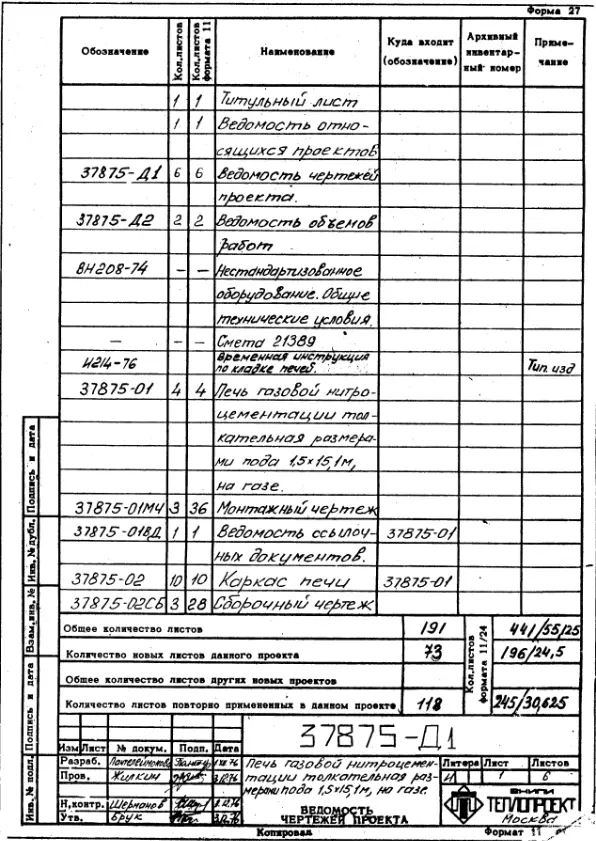 Форма 27
Обозначение Кол.листов Кол.листов формата 11 Наименование Куда входит (обозначение) Архивный инвентарный номер Примечание
1 1 Титульный лист
1 1 Ведомость отно-
сящихся проектов
37875-Д1 6 6 Ведомость чертежей
проекта.
37875-Д2 2 2 Ведомость объемов
работ
ВН208-74 — — Нестандартизованное
оборудование. Общие
технические условия.
— — — Смета 21389
И214-76 Временная инструкция
по кладке печей. Тип. изд
37875-01 4 4 Печь газовой нитро-
цементации тол-
кательная размера-
ми пода 1,5×15,1м,
на газе.
37875-01МЧ 3 36 Монтажный чертеж
37875-01ВД 1 1 Ведомость ссылоч- 37875-01
ных документов.
37875-02 10 10 Каркас печи 37875-01
37875-02СБ 3 28 Сборочный чертеж
Общее количество листов 191
Количество новых листов данного проекта 73
Общее количество листов других новых проектов
Количество листов повторно примененных в данном проекте 118
Кол.листов формата 11/24
441/55,25
196/24,5
245/30,625
Подпись и дата
Инв.№ дубл.
Взам.инв.№
Подпись и дата
Инв.№ подл.
37875-Д1
Изм Лист № докум. Подп. Дата
Разраб.
Пров. Жилкин 3.12.76
Н.контр. Шерманов
Утв. Брук
Печь газовой нитроцемен-
тации толкательная раз-
мерами пода 1,5×15,1м, на газе
ВЕДОМОСТЬ
ЧЕРТЕЖЕЙ ПРОЕКТА
Литера Лист Листов
И 1 6
ВНИПИ
ТЕПЛОПРОЕКТ
Москва
Копировал Формат 11